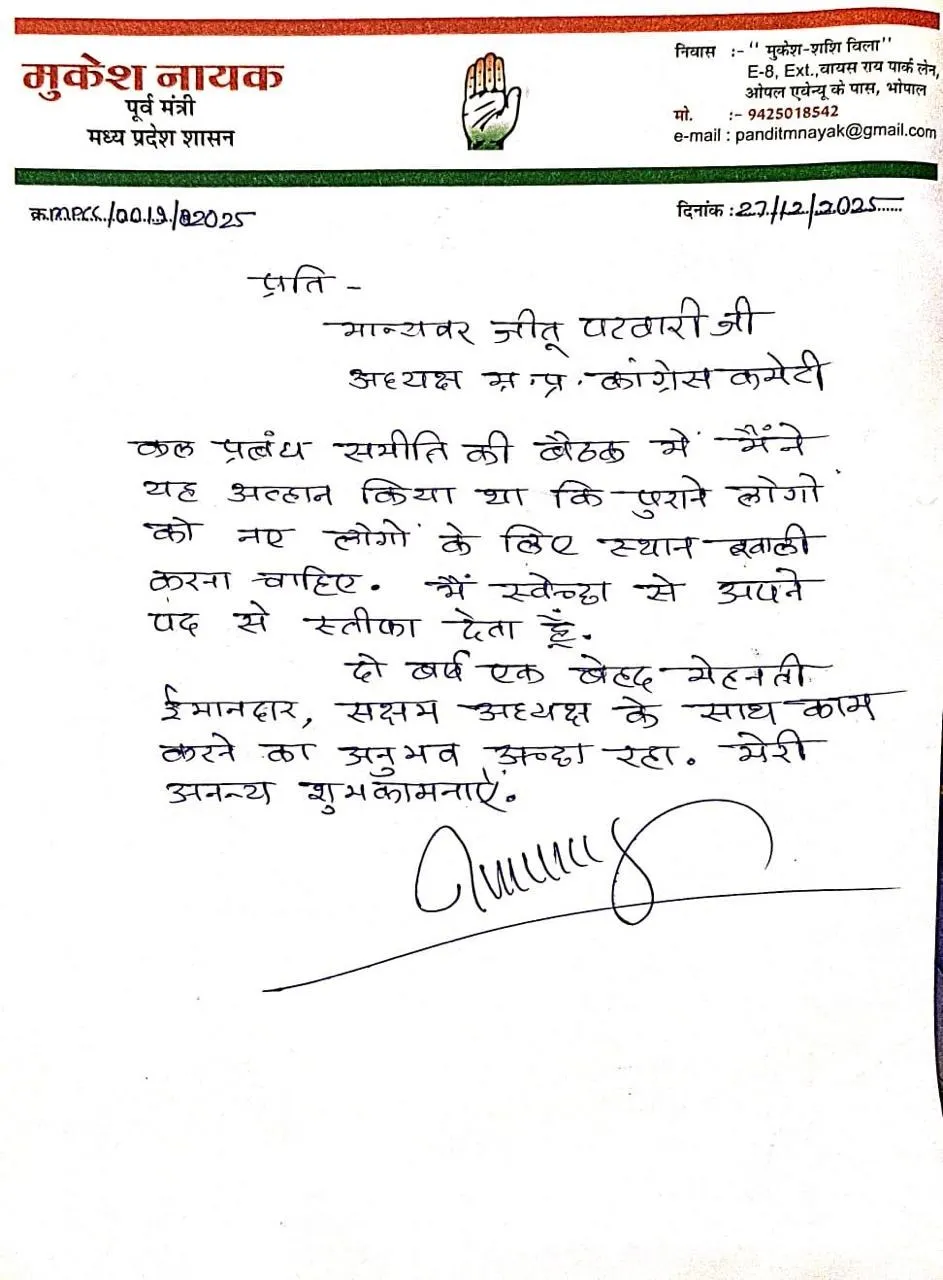 मुकेश नायक
पूर्व मंत्री
मध्य प्रदेश शासन
निवास :- " मुकेश-शशि विला"
E-8, Ext.,वायस राय पार्क लेन,
ओपल एवेन्यू के पास, भोपाल
मो. :- 9425018542
e-mail : panditmnayak@gmail.com
क्र.MPCC/0019/2025
दिनांक : 27/12/2025
प्रति -
मान्यवर जीतू पटवारी जी
अध्यक्ष म.प्र. कांग्रेस कमेटी
कल प्रबंध समीति की बैठक में मैंने
यह अव्हान किया था कि पुराने लोगों
को नए लोगों के लिए स्थान खाली
करना चाहिए. मैं स्वेच्छा से अपने
पद से स्तीफा देता हूँ.
दो वर्ष एक बेहद मेहनती
ईमानदार, सक्षम अध्यक्ष के साथ काम
करने का अनुभव अच्छा रहा. मेरी
अनन्य शुभकामनाऐं.